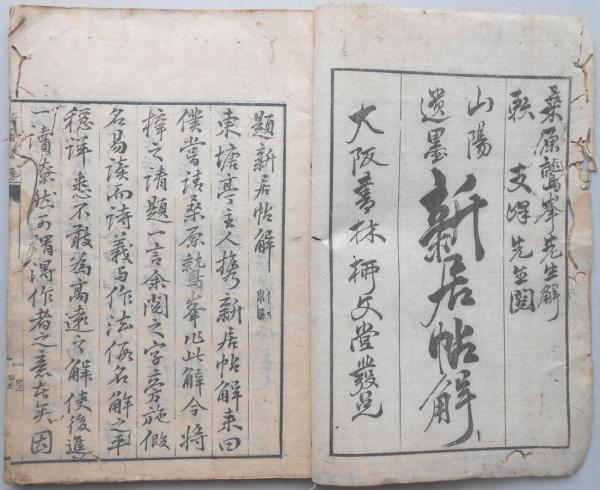 桑原鷲峯先生解
頼 支峰先生閲
山陽
遺墨
新居帖解
大阪書林 柳文堂發兌
題新居帖解
東塘亭主人携新居帖解来曰
僕嘗請桑原鷲峯作此解今将
梓之請題一言余閲之字旁施假
名易讀而詩義与作法假名解之平
穏詳悉不敢為高遠之解使後進
一讀瞭然可謂得作者之意在矣因